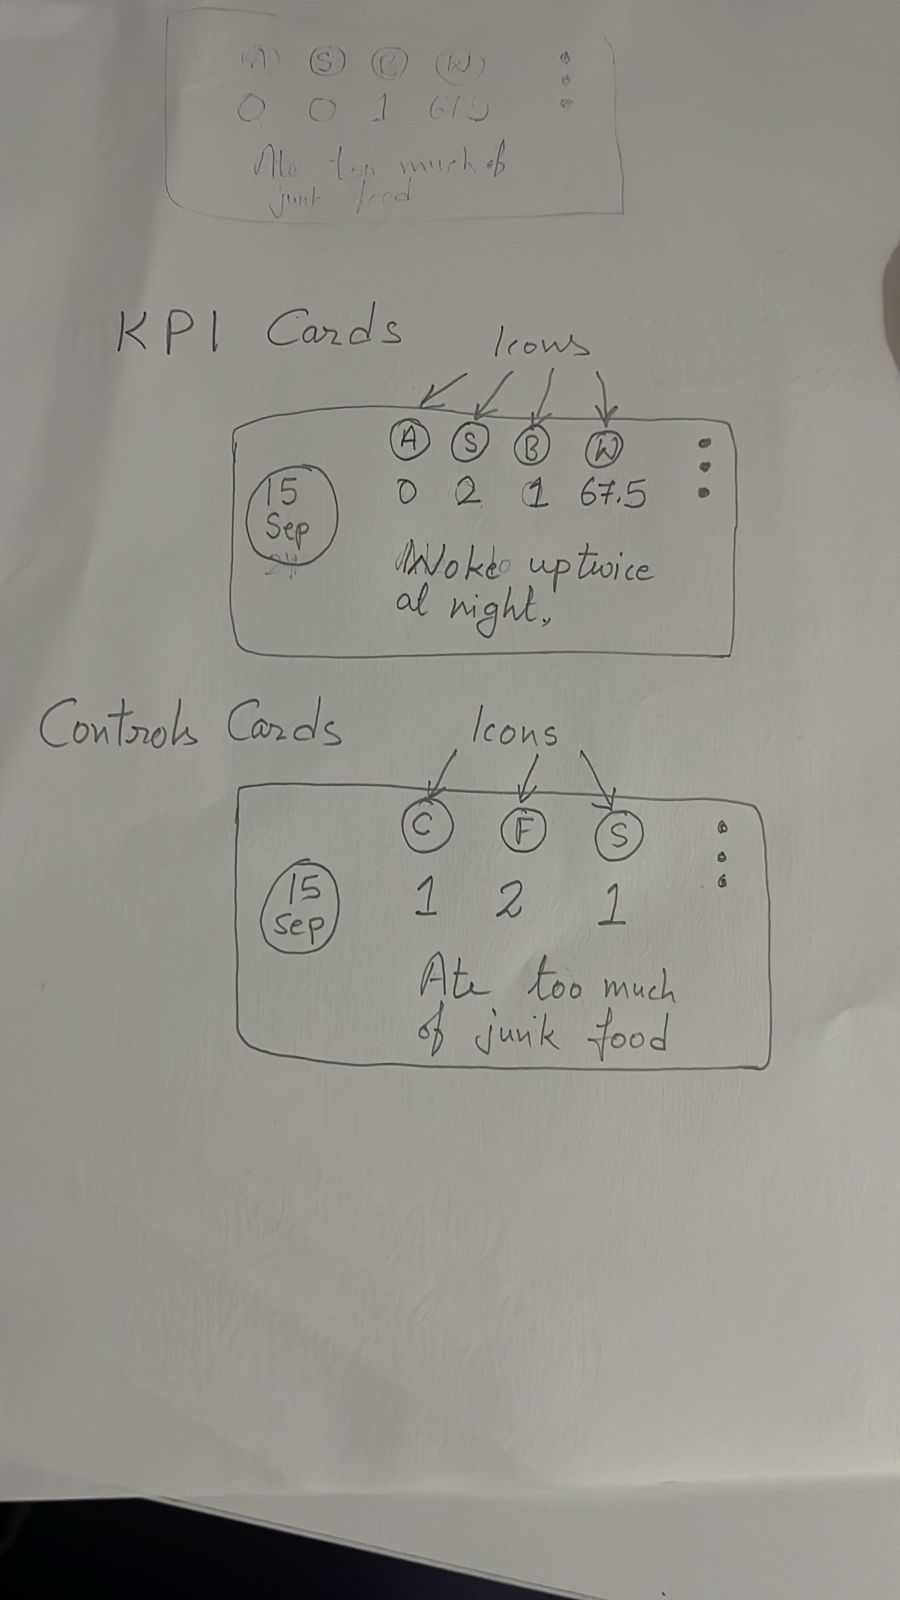 A S B W
0 0 1 67.5
Ate too much of
junk food
KPI Cards
Icons
A S B W
15
Sep
0 2 1 67.5
Woke up twice
at night.
Controls Cards
Icons
C F S
15
Sep
1 2 1
Ate too much
of junk food